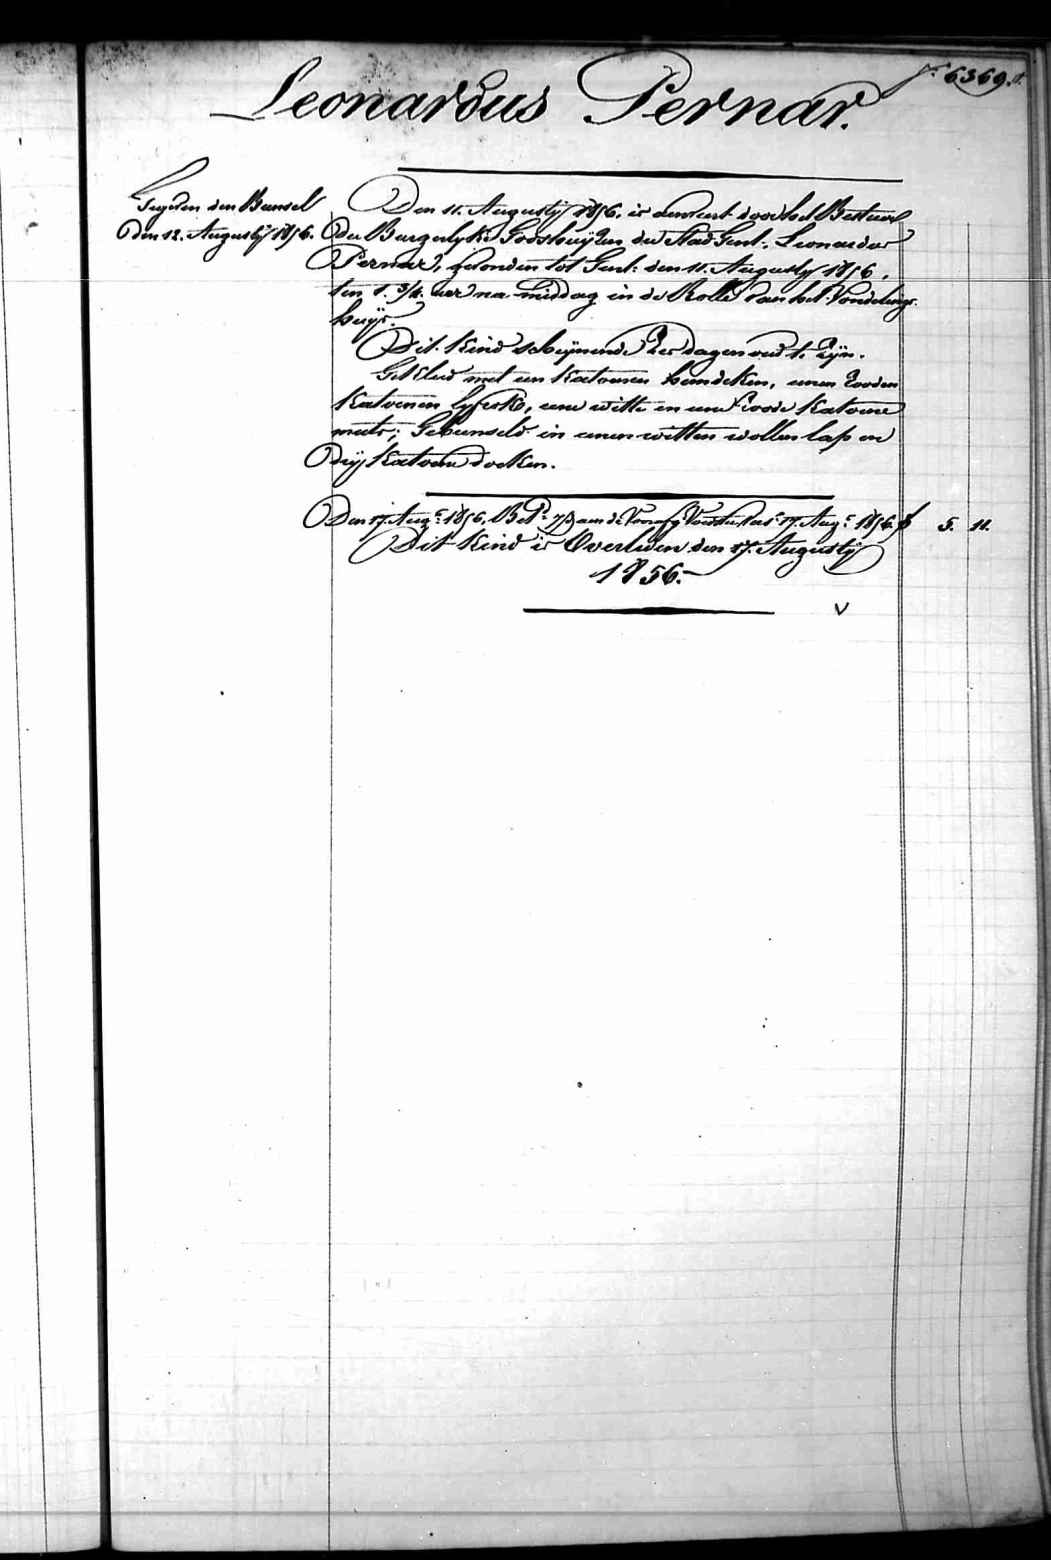 f.° 6369.
Leonardus Pernar.
Gegeven den Bunsel
den 12. Augustÿ 1856.
Den 11. Augustÿ 1856. is aenveert door het Bestuur
der Burgerlyke Godshuÿzen der Stad Gent, Leonardus
Pernar, gevonden tot Gent: den 11. Augusty 1856,
ten 1. 3/4. uer na middag in de Rolle van het Vondelings-
huÿs.
Dit Kind schynende zes dagen oud te zÿn.
Gekleed met een Katoenen hemdeken, eenen rooden
Katoenen lyfrok, eene witte en eene roode Katoene
muts; Gebunseld in eenen witten wollen lap en
drÿ Katoene doeken.
Den 17. Aug.s 1856. Bet.d aan de Voedster 17. Aug.s 1856. f 5. 11.
Dit Kind is Overleden den 17. Augustÿ
1856.
V